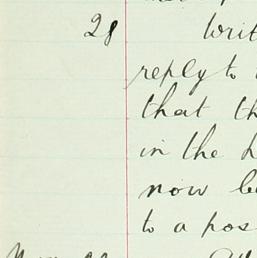 28 Writ
reply to
that th
in the
now be
to a pos